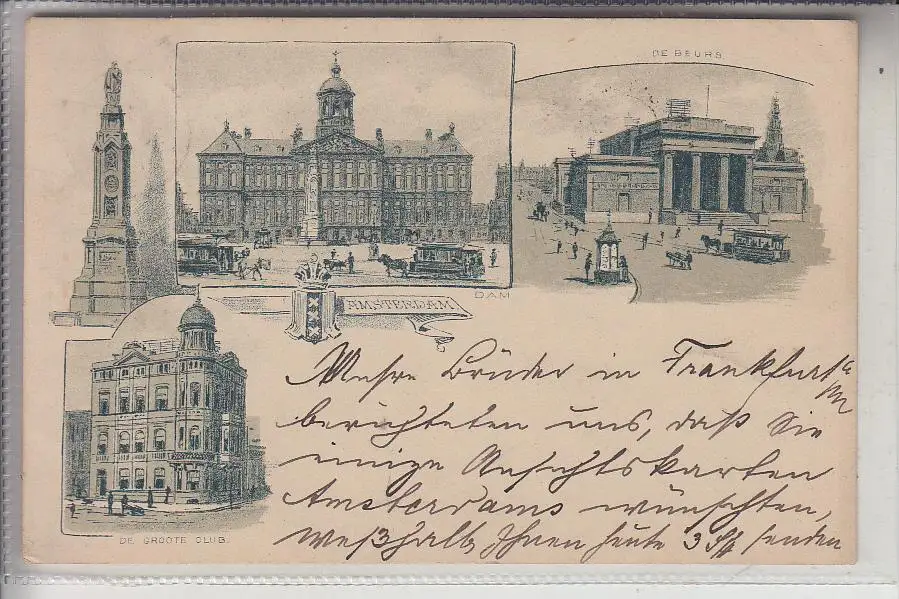 DE BEURS.
DAM
AMSTERDAM
DE GROOTE CLUB.
Unsre Brüder in Frankfurt a/M
berichteten uns, daß Sie
einige Ansichtskarten
Amsterdams wünschten,
weßhalb Ihnen heute 3 Stk senden